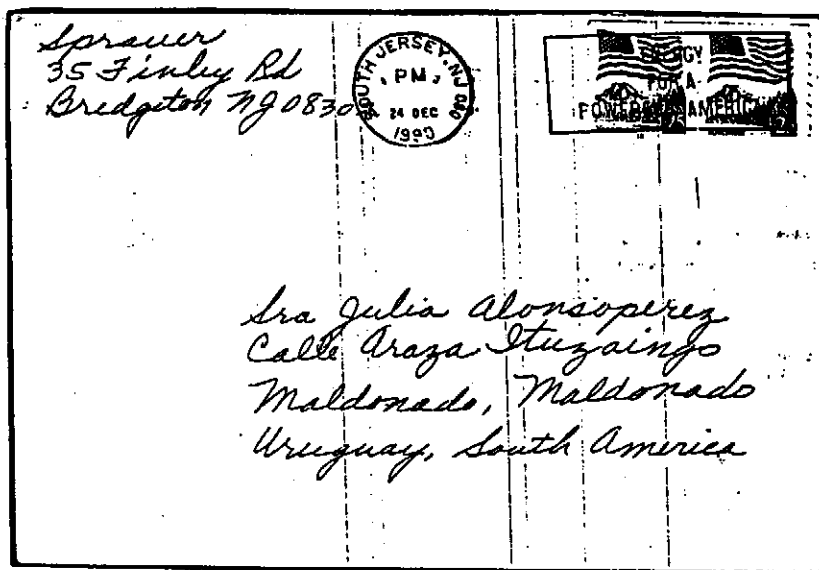 Sprauer
35 Finley Rd
Bridgeton NJ 0830
SOUTH JERSEY, NJ 080
PM
24 DEC
1990
ENERGY
FOR A
POWERFUL AMERICA
25
25
Sra Julia Alonsoperez
Calle Araza Ituzaingo
Maldonado, Maldonado
Uruguay, South America